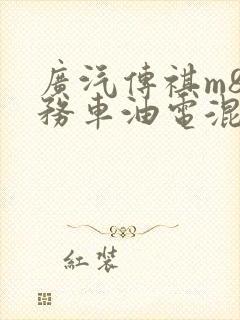 廣汽傳祺m8
務車油電混
紅裝